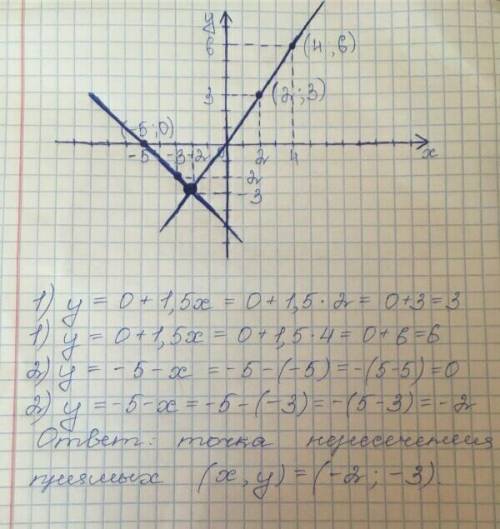 y
6
(4,6)
3
(2;3)
(-5;0)
-5 -3 -2 0 2 4 x
-2
-3
1) y = 0 + 1,5x = 0 + 1,5 · 2 = 0+3 = 3
1) y = 0 + 1,5x = 0 + 1,5 · 4 = 0 + 6 = 6
2) y = -5 - x = -5 - (-5) = -(5-5) = 0
2) y = -5 - x = -5 - (-3) = -(5-3) = -2
Ответ: точка пересечения
прямых (x, y) = (-2; -3).